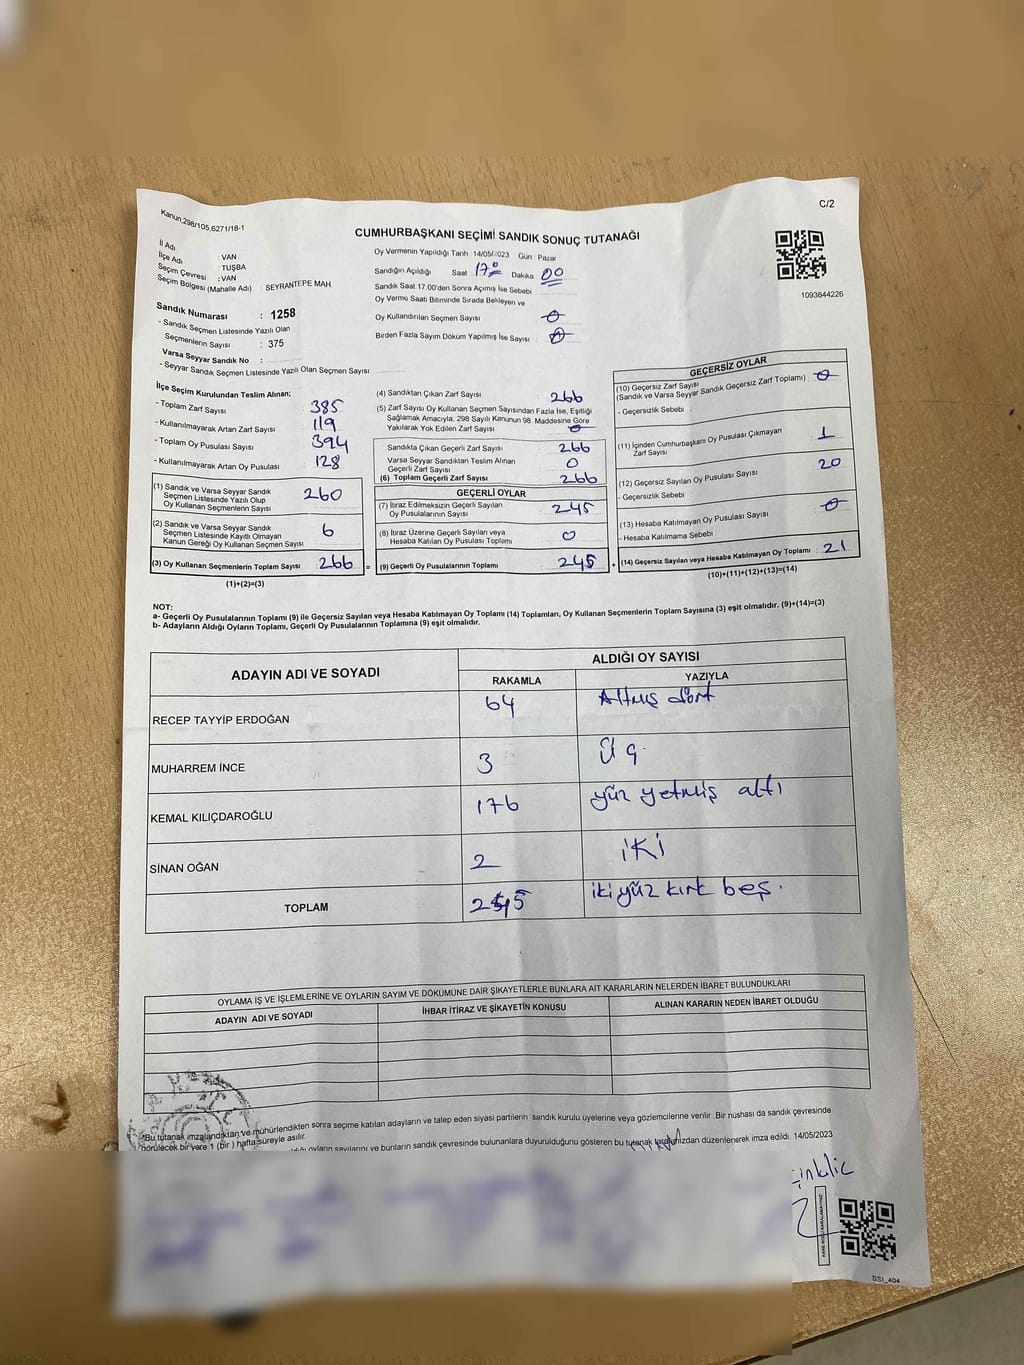 Kanun,298/105,6271/18-1
C/2
CUMHURBAŞKANI SEÇİMİ SANDIK SONUÇ TUTANAĞI
İl Adı : VAN
İlçe Adı : TUŞBA
Seçim Çevresi : VAN
Seçim Bölgesi (Mahalle Adı) : SEYRANTEPE MAH.
Oy Vermenin Yapıldığı Tarih 14/05/2023 Gün Pazar
Sandığın Açıldığı Saat 17:00 Dakika 00
Sandık Saat 17:00'den Sonra Açımış İse Sebebi
Oy Verme Saati Bitiminde Sırada Bekleyen ve
Oy Kullandırılan Seçmen Sayısı 0
Birden Fazla Sayım Döküm Yapılmış İse Sayısı : 0
1093844226
Sandık Numarası : 1258
- Sandık Seçmen Listesinde Yazılı Olan
Seçmenlerin Sayısı : 375
Varsa Seyyar Sandık No :
- Seyyar Sandık Seçmen Listesinde Yazılı Olan Seçmen Sayısı:
İlçe Seçim Kurulundan Teslim Alınan;
- Toplam Zarf Sayısı 385
- Kullanılmayarak Artan Zarf Sayısı 119
- Toplam Oy Pusulası Sayısı 394
- Kullanılmayarak Artan Oy Pusulası 128
(1) Sandık ve Varsa Seyyar Sandık
Seçmen Listesinde Yazılı Olup
Oy Kullanan Seçmenlerin Sayısı 260
(2) Sandık ve Varsa Seyyar Sandık
Seçmen Listesinde Kayıtlı Olmayan
Kanun Gereği Oy Kullanan Seçmen Sayısı 6
(3) Oy Kullanan Seçmenlerin Toplam Sayısı 266 =
(1)+(2)=(3)
(4) Sandıktan Çıkan Zarf Sayısı 266
(5) Zarf Sayısı Oy Kullanan Seçmen Sayısından Fazla İse, Eşitliği
Sağlamak Amacıyla, 298 Sayılı Kanunun 98. Maddesine Göre
Yakılarak Yok Edilen Zarf Sayısı 0
Sandıkta Çıkan Geçerli Zarf Sayısı 266
Varsa Seyyar Sandıktan Teslim Alınan
Geçerli Zarf Sayısı 0
(6) Toplam Geçerli Zarf Sayısı 266
GEÇERLİ OYLAR
(7) İtiraz Edilmeksizin Geçerli Sayılan
Oy Pusulalarının Sayısı 245
(8) İtiraz Üzerine Geçerli Sayılan veya
Hesaba Katılan Oy Pusulası Toplamı 0
(9) Geçerli Oy Pusulalarının Toplamı 245 +
GEÇERSİZ OYLAR
(10) Geçersiz Zarf Sayısı
(Sandık ve Varsa Seyyar Sandık Geçersiz Zarf Toplamı) : 0
- Geçersizlik Sebebi
(11) İçinden Cumhurbaşkanı Oy Pusulası Çıkmayan
Zarf Sayısı 1
(12) Geçersiz Sayılan Oy Pusulası Sayısı 20
- Geçersizlik Sebebi
(13) Hesaba Katılmayan Oy Pusulası Sayısı 0
- Hesaba Katılmama Sebebi
(14) Geçersiz Sayılan veya Hesaba Katılmayan Oy Toplamı : 21
(10)+(11)+(12)+(13)=(14)
NOT:
a- Geçerli Oy Pusulalarının Toplamı (9) ile Geçersiz Sayılan veya Hesaba Katılmayan Oy Toplamı (14) Toplamları, Oy Kullanan Seçmenlerin Toplam Sayısına (3) eşit olmalıdır. (9)+(14)=(3)
b- Adayların Aldığı Oyların Toplamı, Geçerli Oy Pusulalarının Toplamına (9) eşit olmalıdır.
ADAYIN ADI VE SOYADI
ALDIĞI OY SAYISI
RAKAMLA YAZIYLA
RECEP TAYYİP ERDOĞAN 64 Altmış dört
MUHARREM İNCE 3 Üç.
KEMAL KILIÇDAROĞLU 176 yüz yetmiş altı
SİNAN OĞAN 2 iki
TOPLAM 245 iki yüz kırk beş.
OYLAMA İŞ VE İŞLEMLERİNE VE OYLARIN SAYIM VE DÖKÜMÜNE DAİR ŞİKAYETLERLE BUNLARA AİT KARARLARIN NELERDEN İBARET BULUNDUKLARI
ADAYIN ADI VE SOYADI İHBAR İTİRAZ VE ŞİKAYETİN KONUSU ALINAN KARARIN NEDEN İBARET OLDUĞU
*Bu tutanak imzalandıktan ve mühürlendikten sonra seçime katılan adayların ve talep eden siyasi partilerin sandık kurulu üyelerine veya gözlemcilerine verilir .Bir nüshası da sandık çevresinde
görülecek bir yere 1 (bir ) hafta süreyle asılır.
oyların sayılarını ve bunların sandık çevresinde bulunanlara duyurulduğunu gösteren bu tutanak tarafımızdan düzenlenerek imza edildi. 14/05/2023
SSİ_404